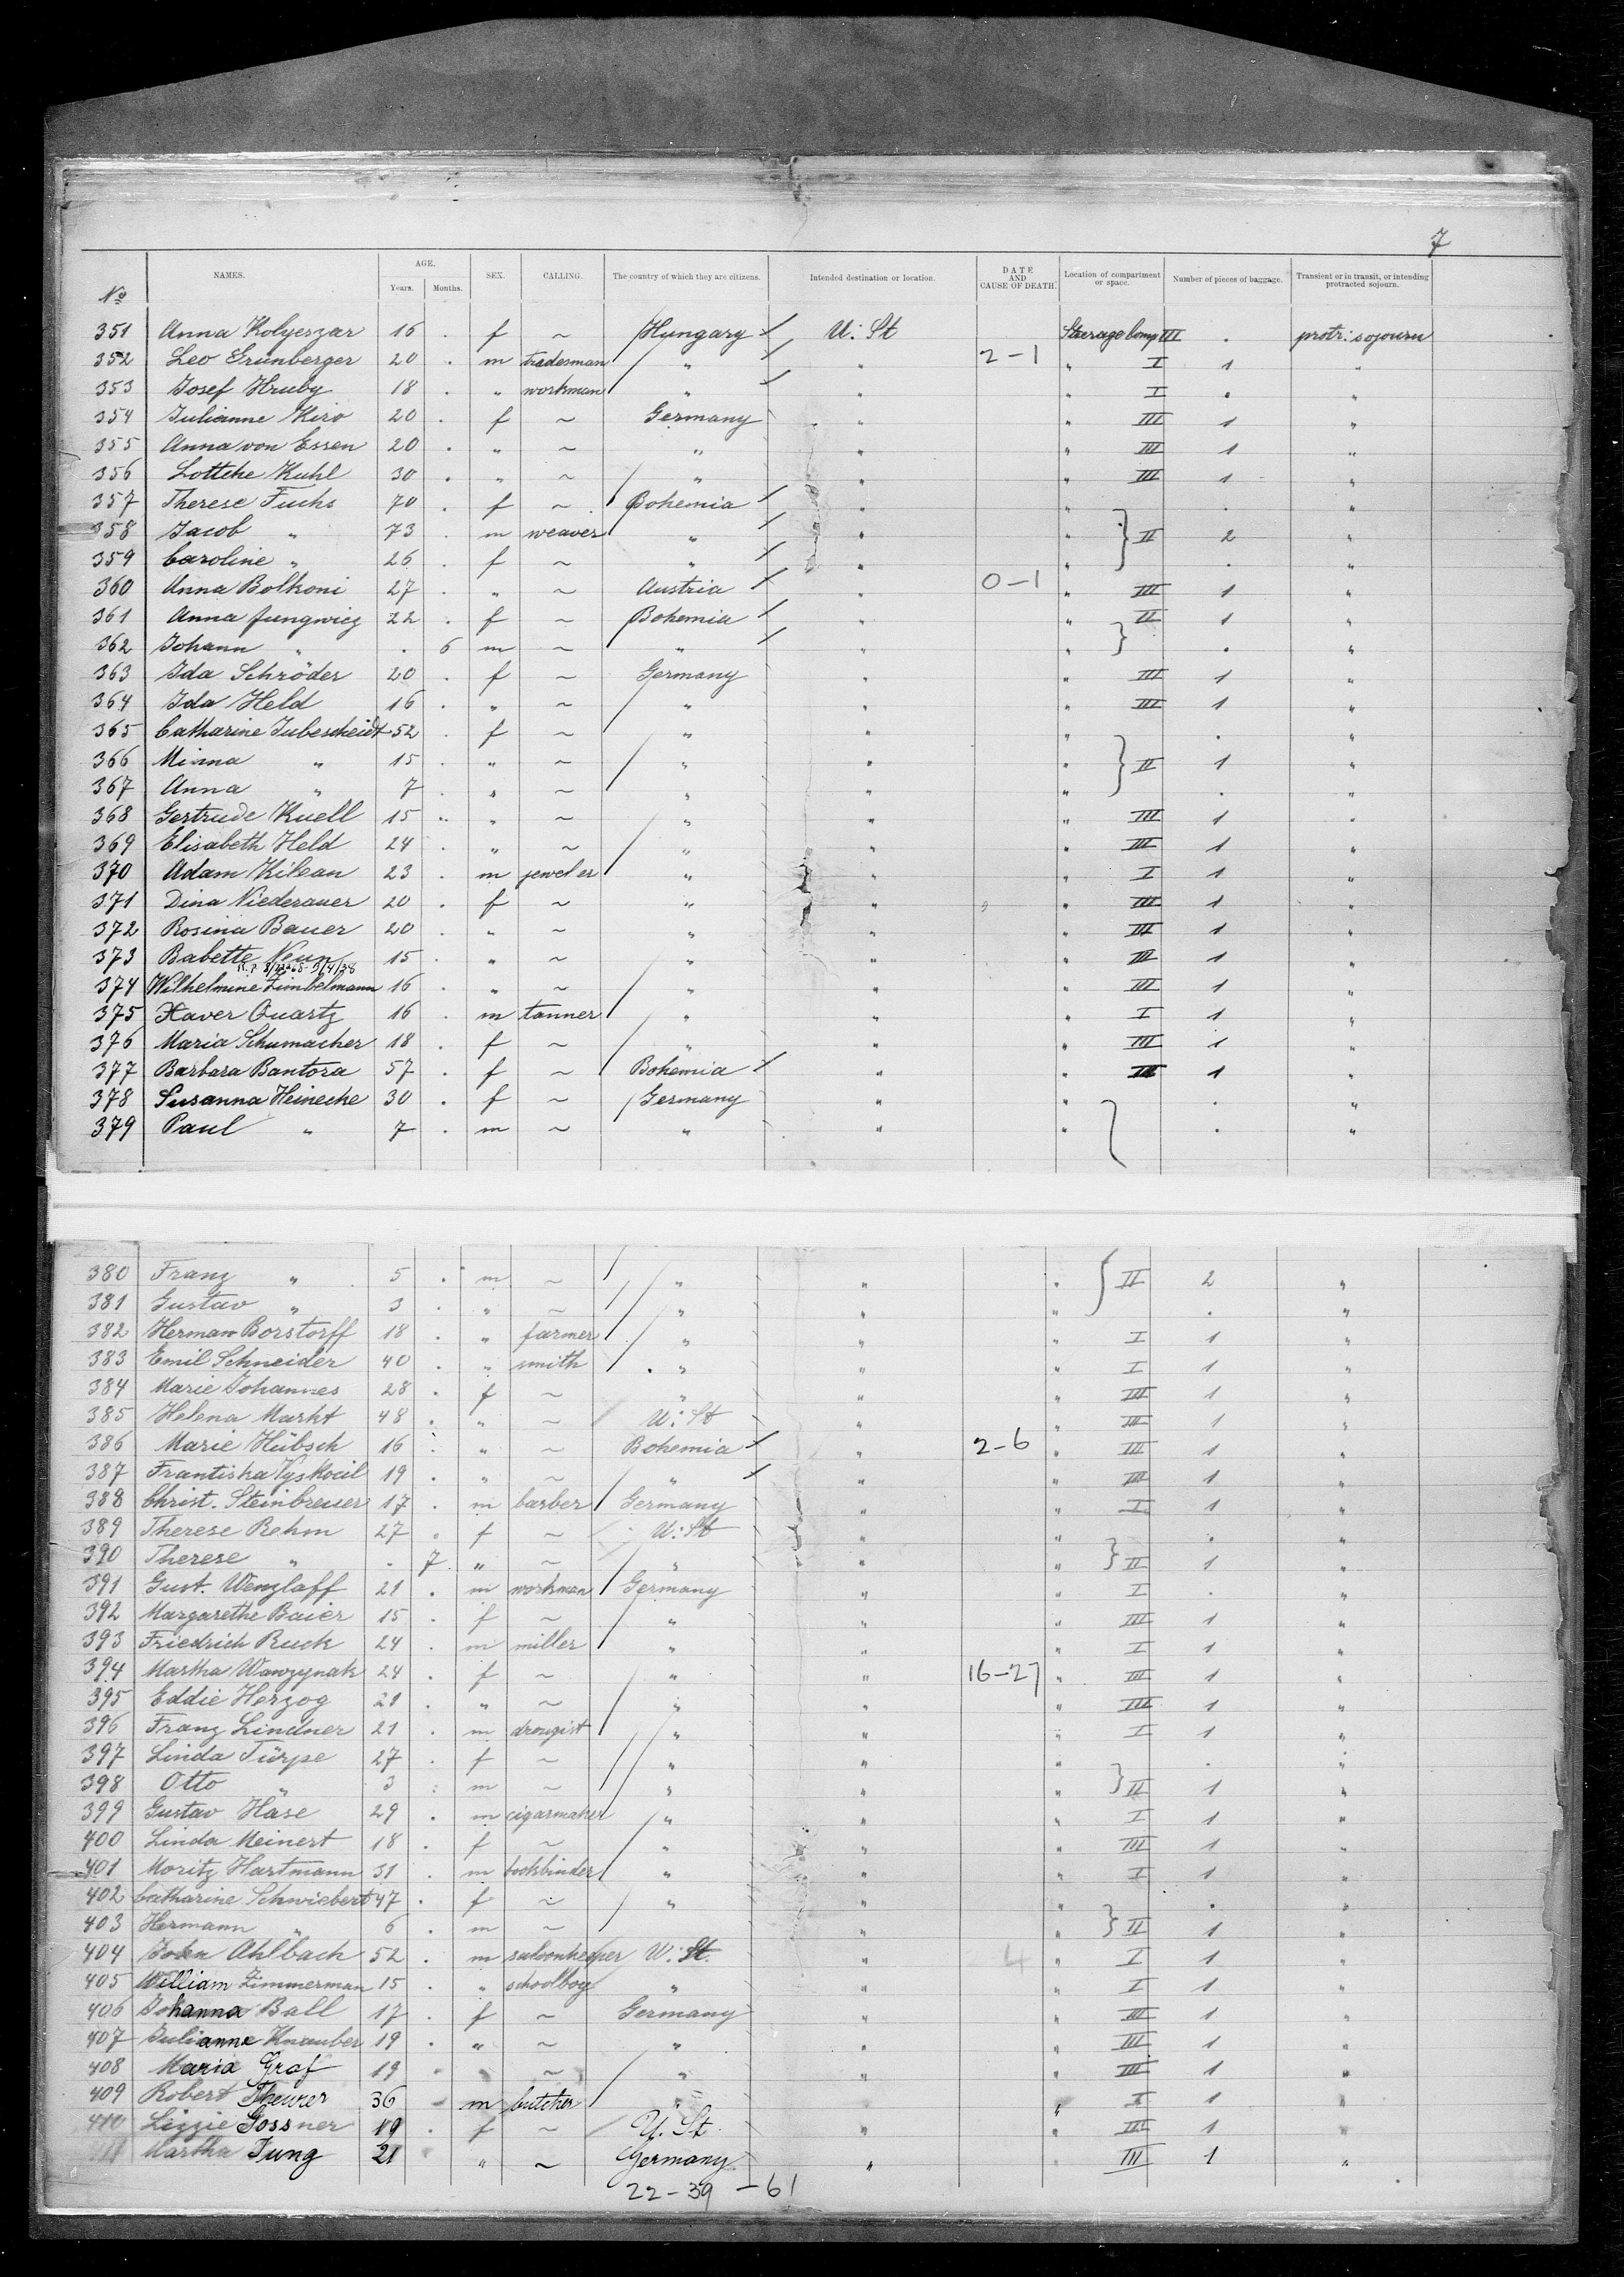 7
No NAMES. AGE. Years. Months. SEX. CALLING. The country of which they are citizens. Intended destination or location. DATE AND CAUSE OF DEATH. Location of compartment or space. Number of pieces of baggage. Transient or in transit, or intending protracted sojourn.
351 Anna Kolyeszar 16 . f ~ Hungary / U: St Steerage Comp III . protr: sojourn
352 Leo Grünberger 20 . m tradesman " / " 2-1 " I 1 "
353 Josef Hruby 18 . " workman " / " " I . "
354 Julianne Kiro 20 . f ~ Germany " " III 1 "
355 Anna von Essen 20 . " ~ " " " III 1 "
356 Lottche Kuhl 30 . " ~ " " " III 1 "
357 Therese Fuchs 70 . f ~ Bohemia / " " . "
358 Jacob " 73 . m weaver " / " " } II 2 "
359 Caroline " 26 . f ~ " / " " . "
360 Anna Bolkoni 27 . " ~ Austria / " 0-1 " III 1 "
361 Anna Jungwicz 22 . f ~ Bohemia / " " II 1 "
362 Johann " . 6 m ~ " / " " } . "
363 Ida Schröder 20 . f ~ Germany " " III 1 "
364 Ida Held 16 . " ~ " " " III 1 "
365 Catharine Jubescheidt 52 . f ~ " " " . "
366 Minna " 15 . " ~ " " " } II 1 "
367 Anna " 7 . " ~ " " " . "
368 Gertrude Kuell 15 . " ~ " " " III 1 "
369 Elisabeth Held 24 . " ~ " " " III 1 "
370 Adam Kilean 23 . m jeweler " " " I 1 "
371 Dina Niederauer 20 . f ~ " " " III 1 "
372 Rosina Bauer 20 . " ~ " " " III 1 "
373 Babette Neun 15 . " ~ " " " III 1 "
374 Wilhelmine Zimbelmann 16 . " ~ " " " III 1 "
375 Xaver Quartz 16 . m tanner " " " I 1 "
376 Maria Schumacher 18 . f ~ " " " III 1 "
377 Barbara Bantora 57 . f ~ Bohemia / " " III 1 "
378 Susanna Heinecke 30 . f ~ Germany " " . "
379 Paul " 7 . m ~ " " " . "
380 Franz " 5 . m ~ " " " } II 2 "
381 Gustav " 3 . " ~ " " " . "
382 Herman Borstorff 18 . " farmer " " " I 1 "
383 Emil Schneider 40 . " smith " " " I 1 "
384 Marie Johannes 28 . f ~ " " " III 1 "
385 Helena Markt 48 . " ~ U: St " " III 1 "
386 Marie Hübsch 16 . " ~ Bohemia / " 2-6 " III 1 "
387 Frantiska Vyskocil 19 . " ~ " / " " III 1 "
388 Christ. Steinbreuer 17 . m barber Germany " " I 1 "
389 Therese Rehm 27 . f ~ U: St " " . "
390 Therese " . 7 " ~ " " " } II 1 "
391 Gust. Wenzlaff 21 . m workman Germany " " I . "
392 Margarethe Baier 15 . f ~ " " " III 1 "
393 Friedrich Ruck 24 . m miller " " " I 1 "
394 Martha Wawzynak 24 . f ~ " " 16-27 " III 1 "
395 Eddie Herzog 21 . " ~ " " " III 1 "
396 Franz Lindner 21 . m drougist " " " I 1 "
397 Linda Türpe 27 . f ~ " " " . "
398 Otto " 3 . m ~ " " " } II 1 "
399 Gustav Häse 29 . m cigarmaker " " " I 1 "
400 Linda Meinert 18 . f ~ " " " III 1 "
401 Moritz Hartmann 31 . m bookbinder " " " I 1 "
402 Catharine Schwiebert 47 . f ~ " " " . "
403 Hermann " 6 . m ~ " " " } II 1 "
404 John Ahlbach 52 . m saloonkeeper U: St. " 4 " I 1 "
405 William Zimmerman 15 . " schoolboy " " " I 1 "
406 Johanna Ball 17 . f ~ Germany " " III 1 "
407 Julianne Knauber 19 . " ~ " " " III 1 "
408 Maria Graf 19 . " ~ " " " III 1 "
409 Robert Theurer 36 . m butcher " " " I 1 "
410 Lizzie Gossner 19 . f ~ U. St " " III 1 "
411 Martha Jung 21 . " ~ Germany " " III 1 "
22-39-61